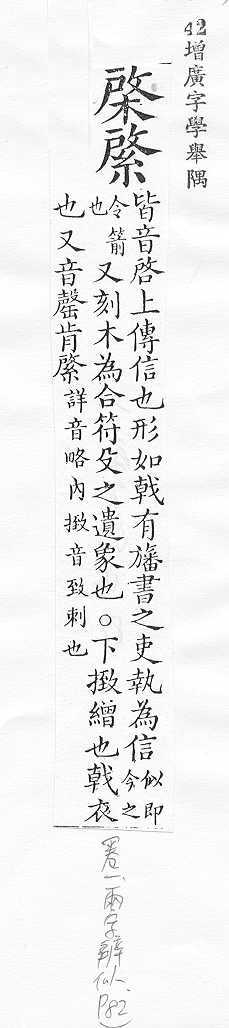 42增廣字學舉隅
棨綮
皆音啓上傳信也形如戟有旛書之吏執為信似即今之
令箭也又刻木為合符殳之遺象也○下撒繒也戟衣
也又音罄肯綮詳音略內撒音致刺也
(卷一、兩字辨似、P82)